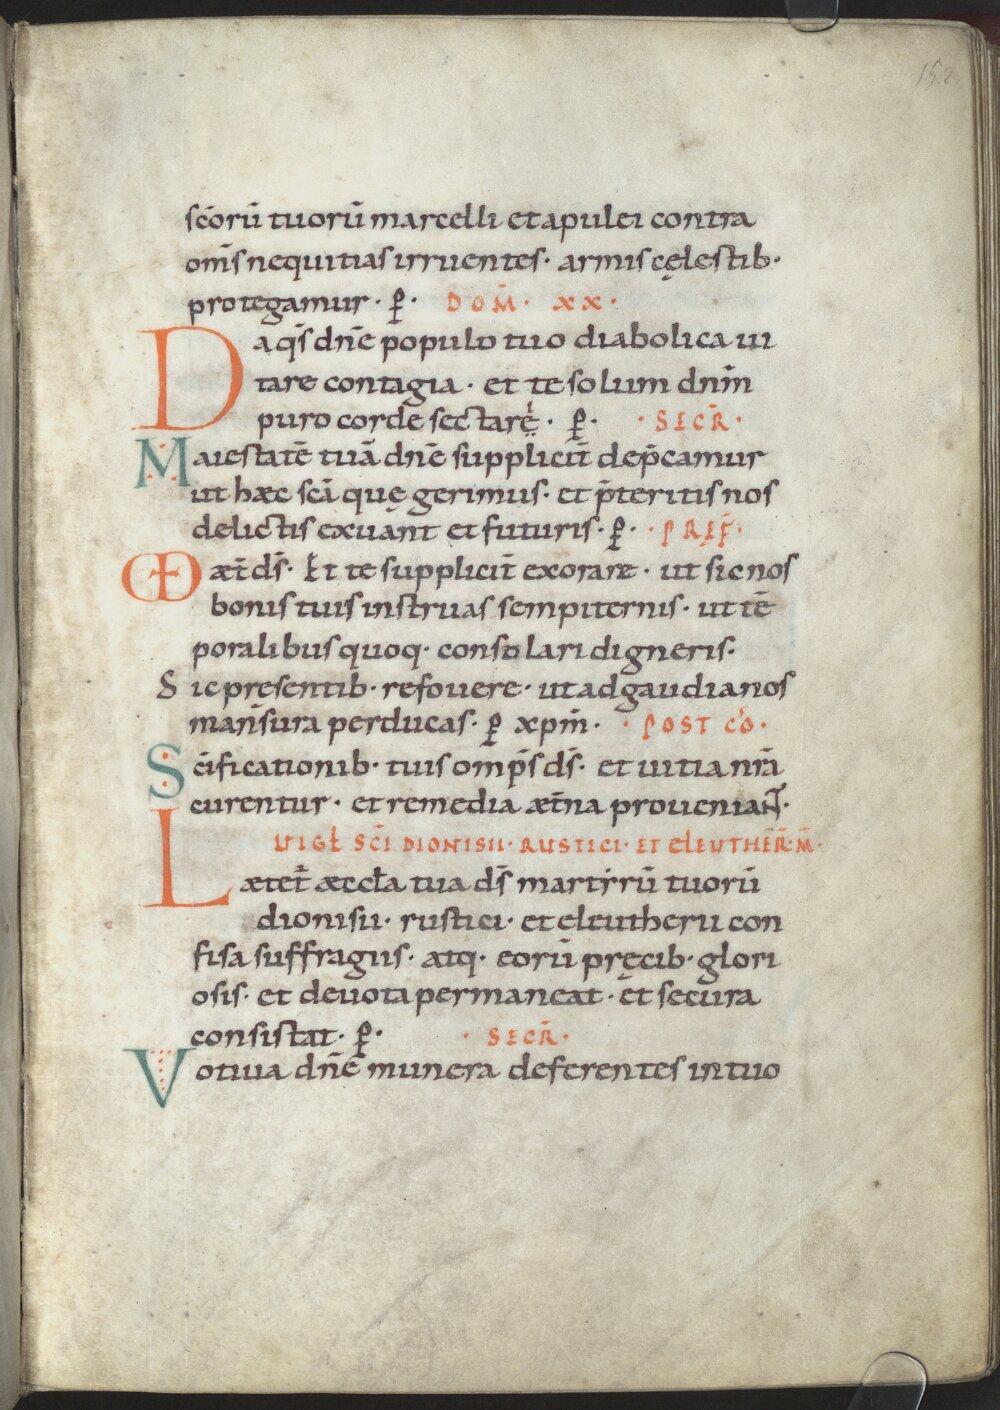 152
sc̄orū tuorū marcelli et apulei contra
om̄s nequitias irruentes· armis cęlestib·
protegamur· ꝑ· DOM̄· XX·
Da q̄s dn̄e populo tuo diabolica ui
tare contagia· et te solum dn̄m
puro corde sectare· ꝑ· ·SECR̄·
Maiestatē tuā dn̄e supplicit̄ dep̄camur
ut hæc sc̄a quę gerimus· et p̄teritis nos
delictis exuant et futuris· ꝑ· ·PRĘF̄·
æt̄ ds̄· Et te supplicit̄ exorare· ut sic nos
bonis tuis instruas sempiternis· ut tē
poralibus quoq· consolari digneris·
Sic presentib· refouere· ut ad gaudia nos
mansura perducas· ꝑ xpm̄· ·POST CŌ·
Sc̄ificationib· tuis omp̄s ds̄· et uitia nr̄a
curentur· et remedia æt̄na proueniant̄·
VIGƚ SC̄I DIONISII· RUSTICI· ET ELEUTHERII· M̄·
Lætet̄ æccƚa tua ds̄ martyrū tuorū
dionisii· rustici· et eleutherii con
fisa suffragiis· atq· eorū pręcib· glori
osis· et deuota permaneat· et secura
consistat· ꝑ· ·SECR̄·
Votiua dn̄e munera deferentes in tuo